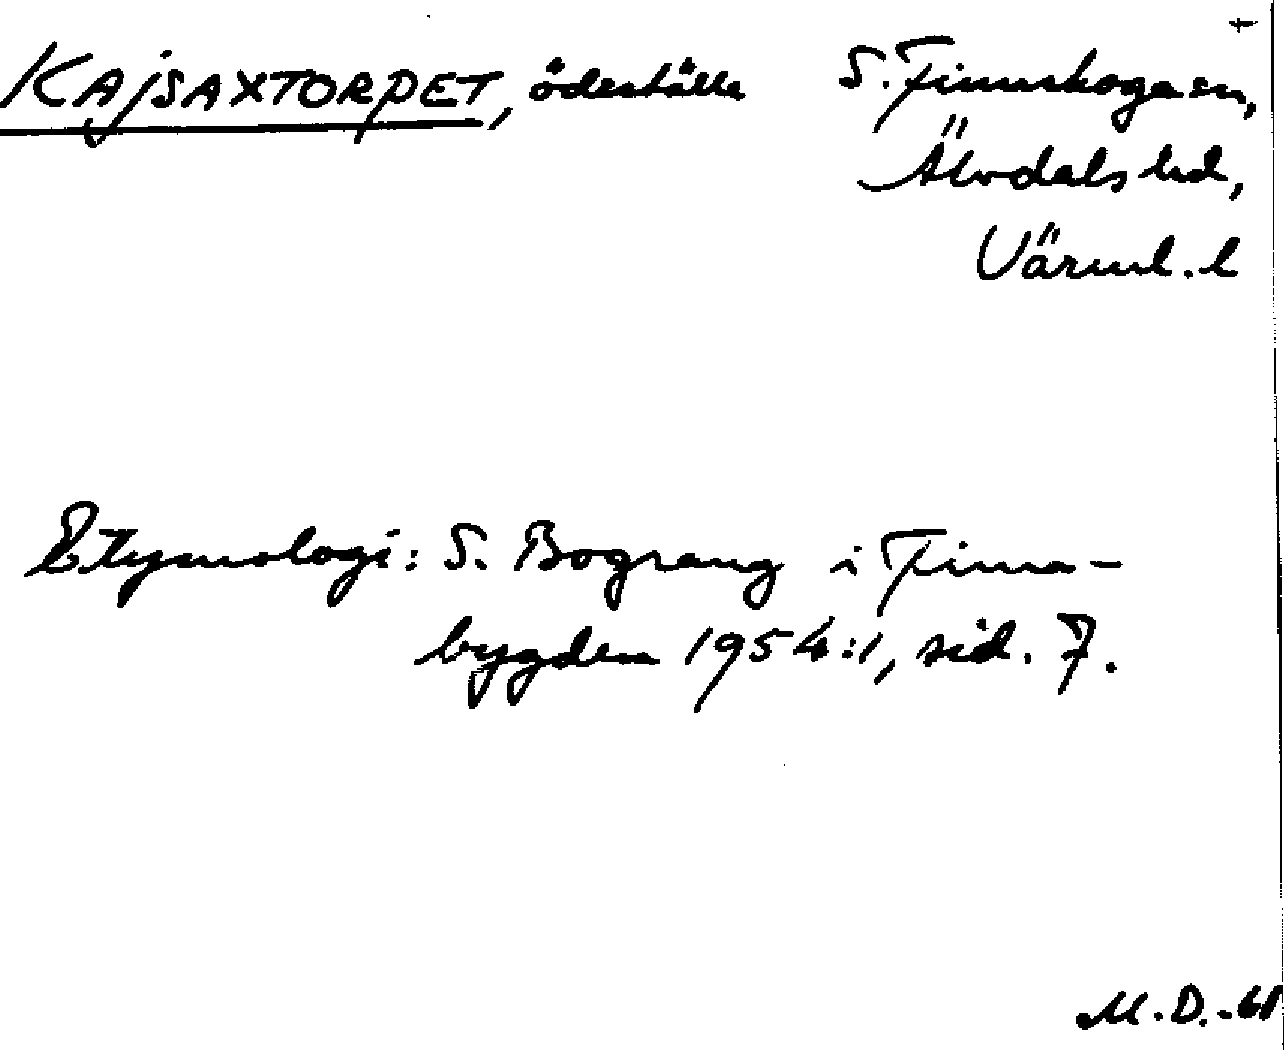 KAJSAXTORPET, ödeställe S. Finnskoga sn,
Älvdals hd,
Värml. l
Etymologi: S. Bograng i Finn-
bygden 1954:1, sid. 7.
M.D.-61